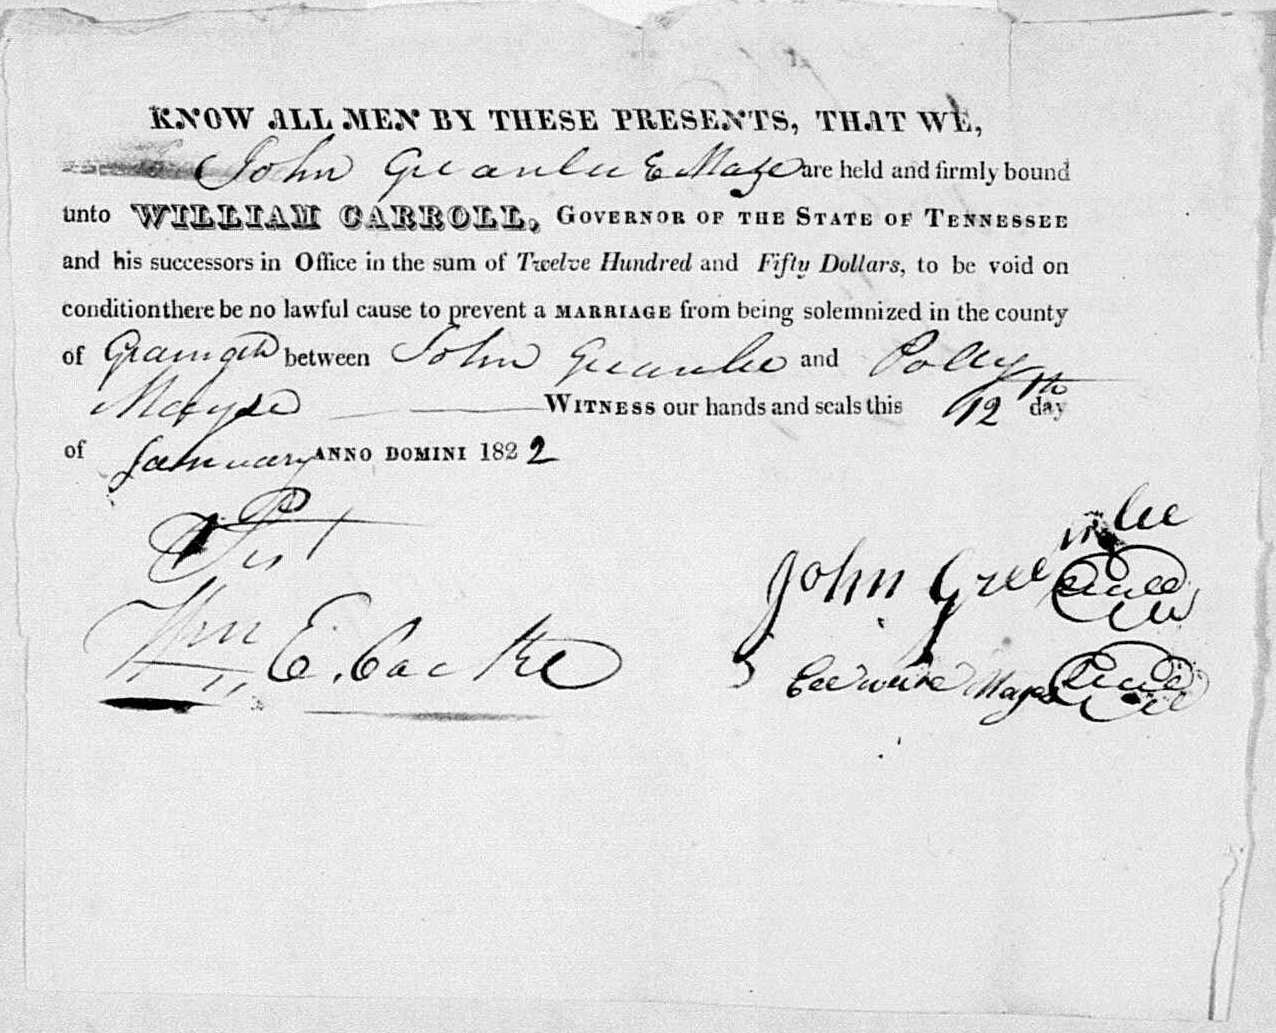 KNOW ALL MEN BY THESE PRESENTS, THAT WE,
John Greanlee & Mayze are held and firmly bound
unto WILLIAM CARROLL, GOVERNOR OF THE STATE OF TENNESSEE
and his successors in Office in the sum of Twelve Hundred and Fifty Dollars, to be void on
condition there be no lawful cause to prevent a MARRIAGE from being solemnized in the county
of between John Greanlee and Polly
Mayse WITNESS our hands and seals this 12th day
of January ANNO DOMINI 1822
Test
Wm E. Cocke
John Greenlee Seal
Mayes Seal